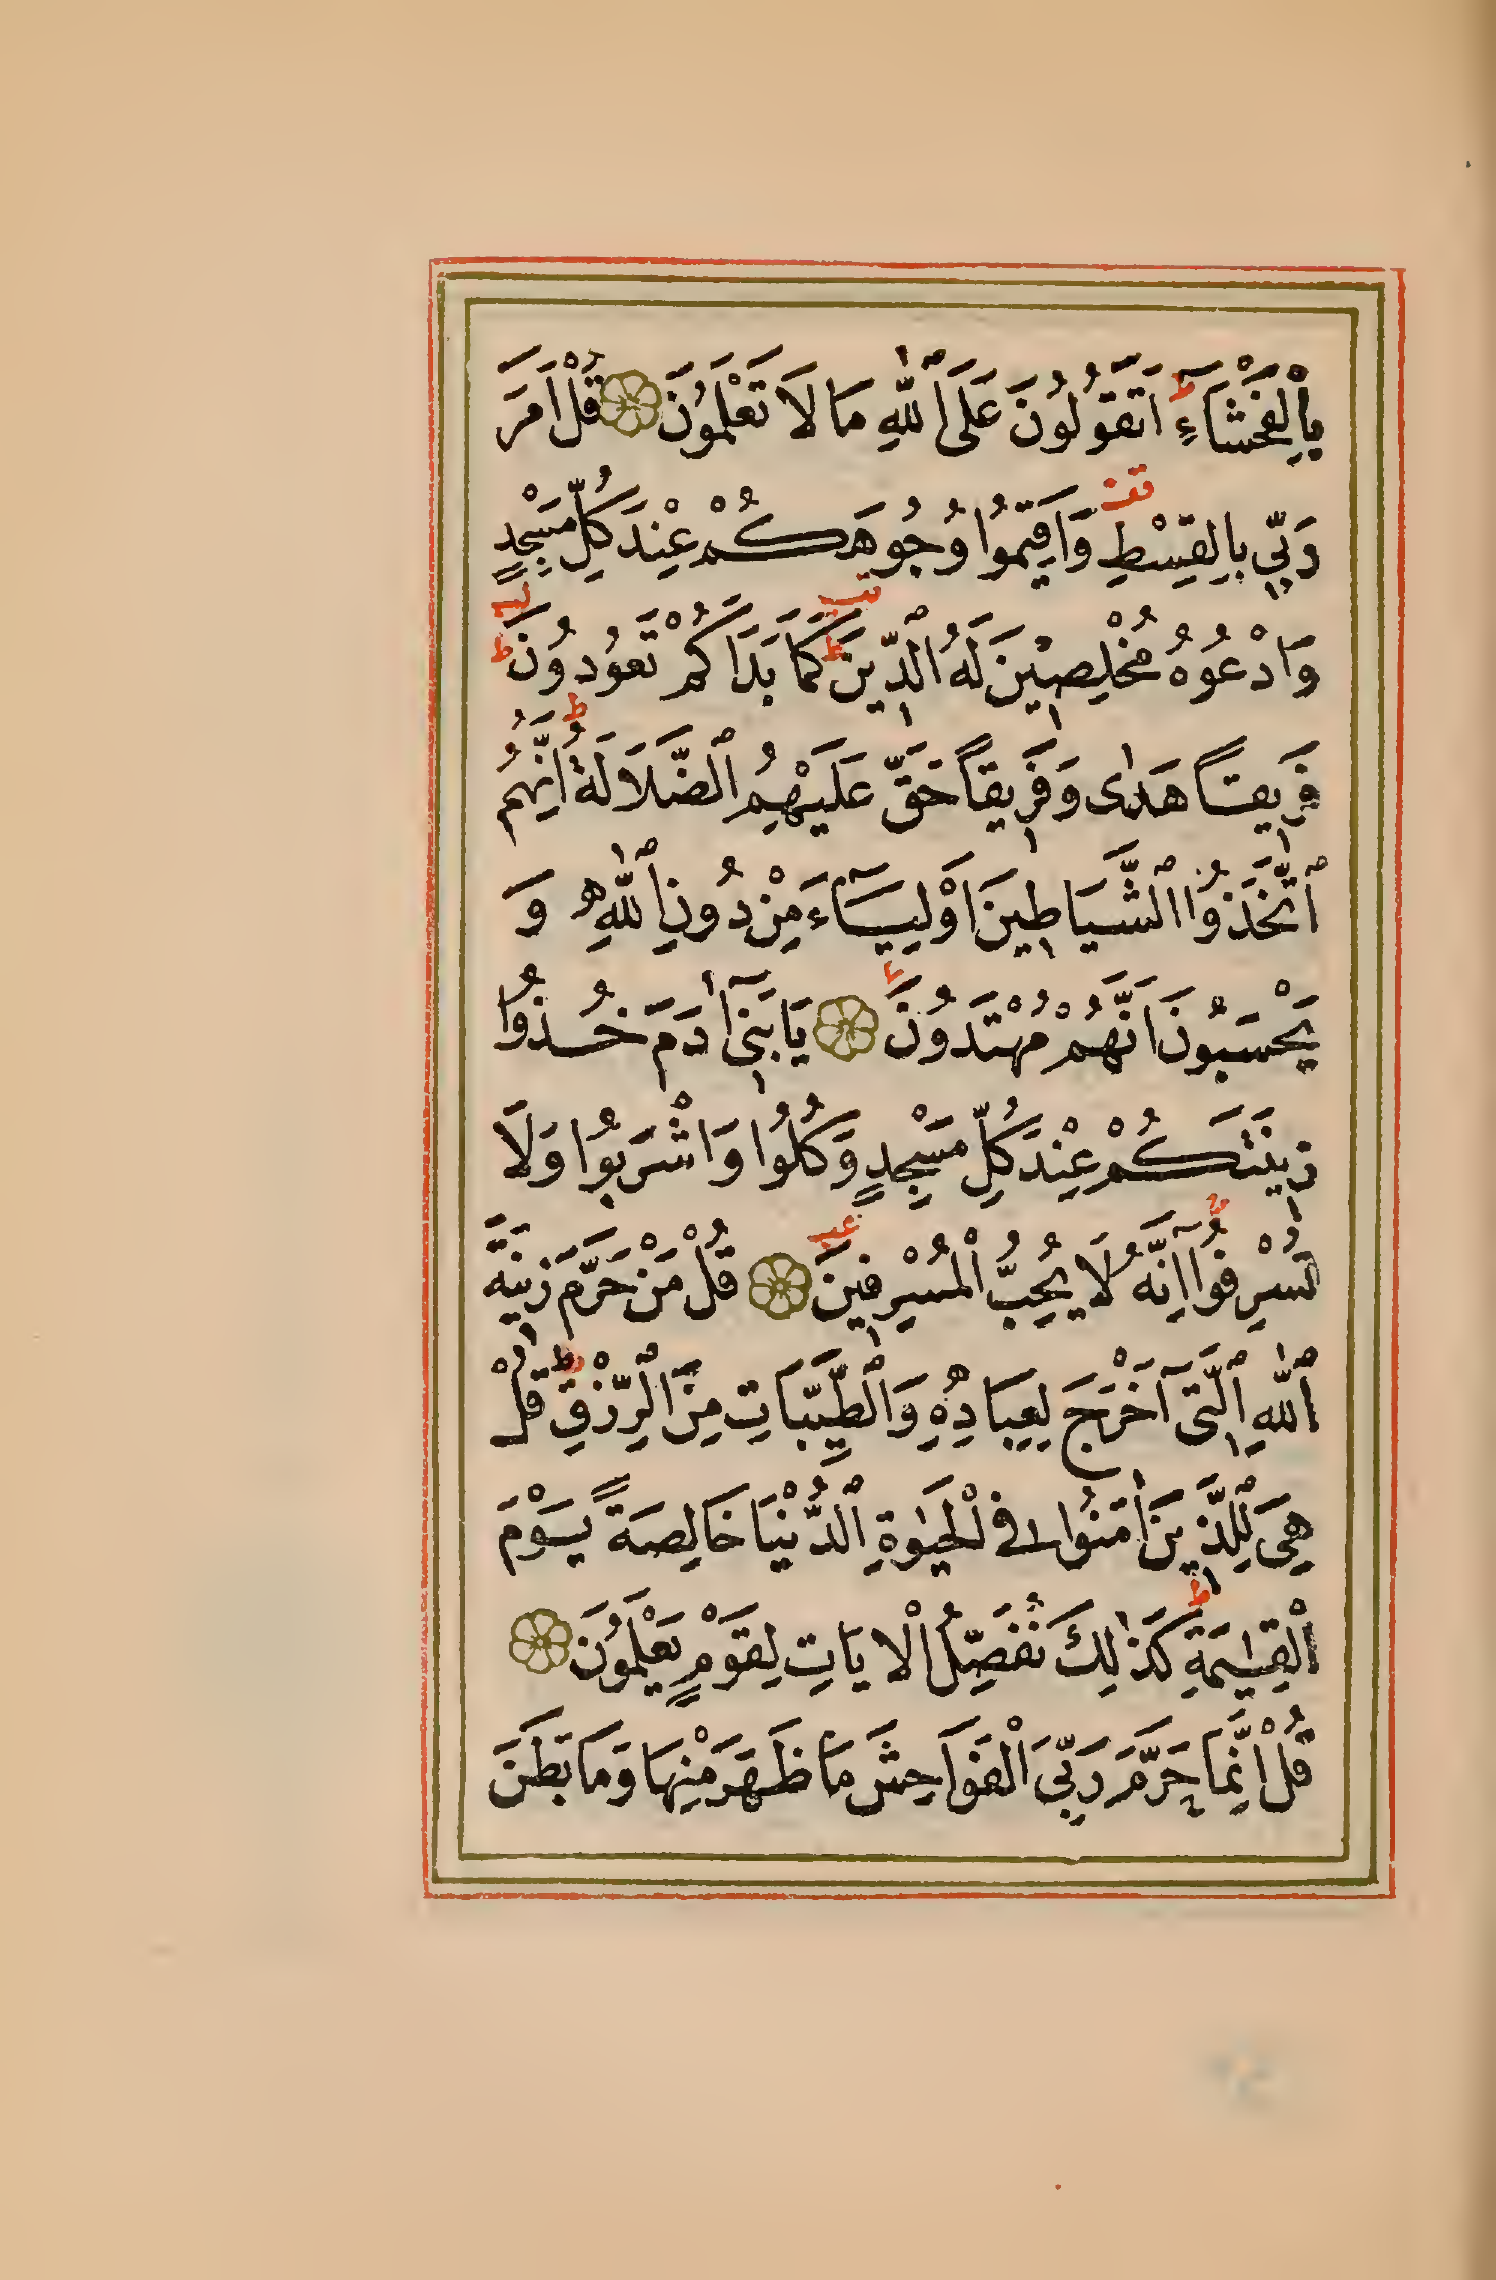 بِالْفَحْشَآءِ ط اَتَقُولُونَ عَلَى ٱللّٰهِ مَا لَا تَعْلَمُونَ قُلْ اَمَرَ
رَبِّي بِالْقِسْطِ قف وَاَقِيمُوا وُجُوهَكُمْ عِنْدَ كُلِّ مَسْجِدٍ
وَادْعُوهُ مُخْلِصِينَ لَهُ الدِّينَ ط كَمَا بَدَاَكُمْ تَعُودُونَ ط
فَرِيقًا هَدٰى وَفَرِيقًا حَقَّ عَلَيْهِمُ ٱلضَّلَالَةُ ط اِنَّهُمُ
ٱتَّخَذُوا ٱلشَّيَاطِينَ اَوْلِيَآءَ مِنْ دُونِ ٱللّٰهِ وَ
يَحْسَبُونَ اَنَّهُمْ مُهْتَدُونَ يَا بَنِٓى اٰدَمَ خُذُوا
زِينَتَكُمْ عِنْدَ كُلِّ مَسْجِدٍ وَكُلُوا وَاشْرَبُوا وَلَا
تُسْرِفُوا اِنَّهُ لَا يُحِبُّ الْمُسْرِفِينَ قُلْ مَنْ حَرَّمَ زِينَةَ
ٱللّٰهِ ٱلَّتِٓى اَخْرَجَ لِعِبَادِهِ وَٱلطَّيِّبَاتِ مِنَ ٱلرِّزْقِ ط قُلْ
هِيَ لِلَّذِينَ اٰمَنُوا فِي لْحَيٰوةِ ٱلدُّنْيَا خَالِصَةً يَوْمَ
الْقِيٰمَةِ ط كَذٰلِكَ نُفَصِّلُ الْاٰيَاتِ لِقَوْمٍ يَعْلَمُونَ
قُلْ اِنَّمَا حَرَّمَ رَبِّيَ الْفَوَاحِشَ مَا ظَهَرَ مِنْهَا وَمَا بَطَنَ